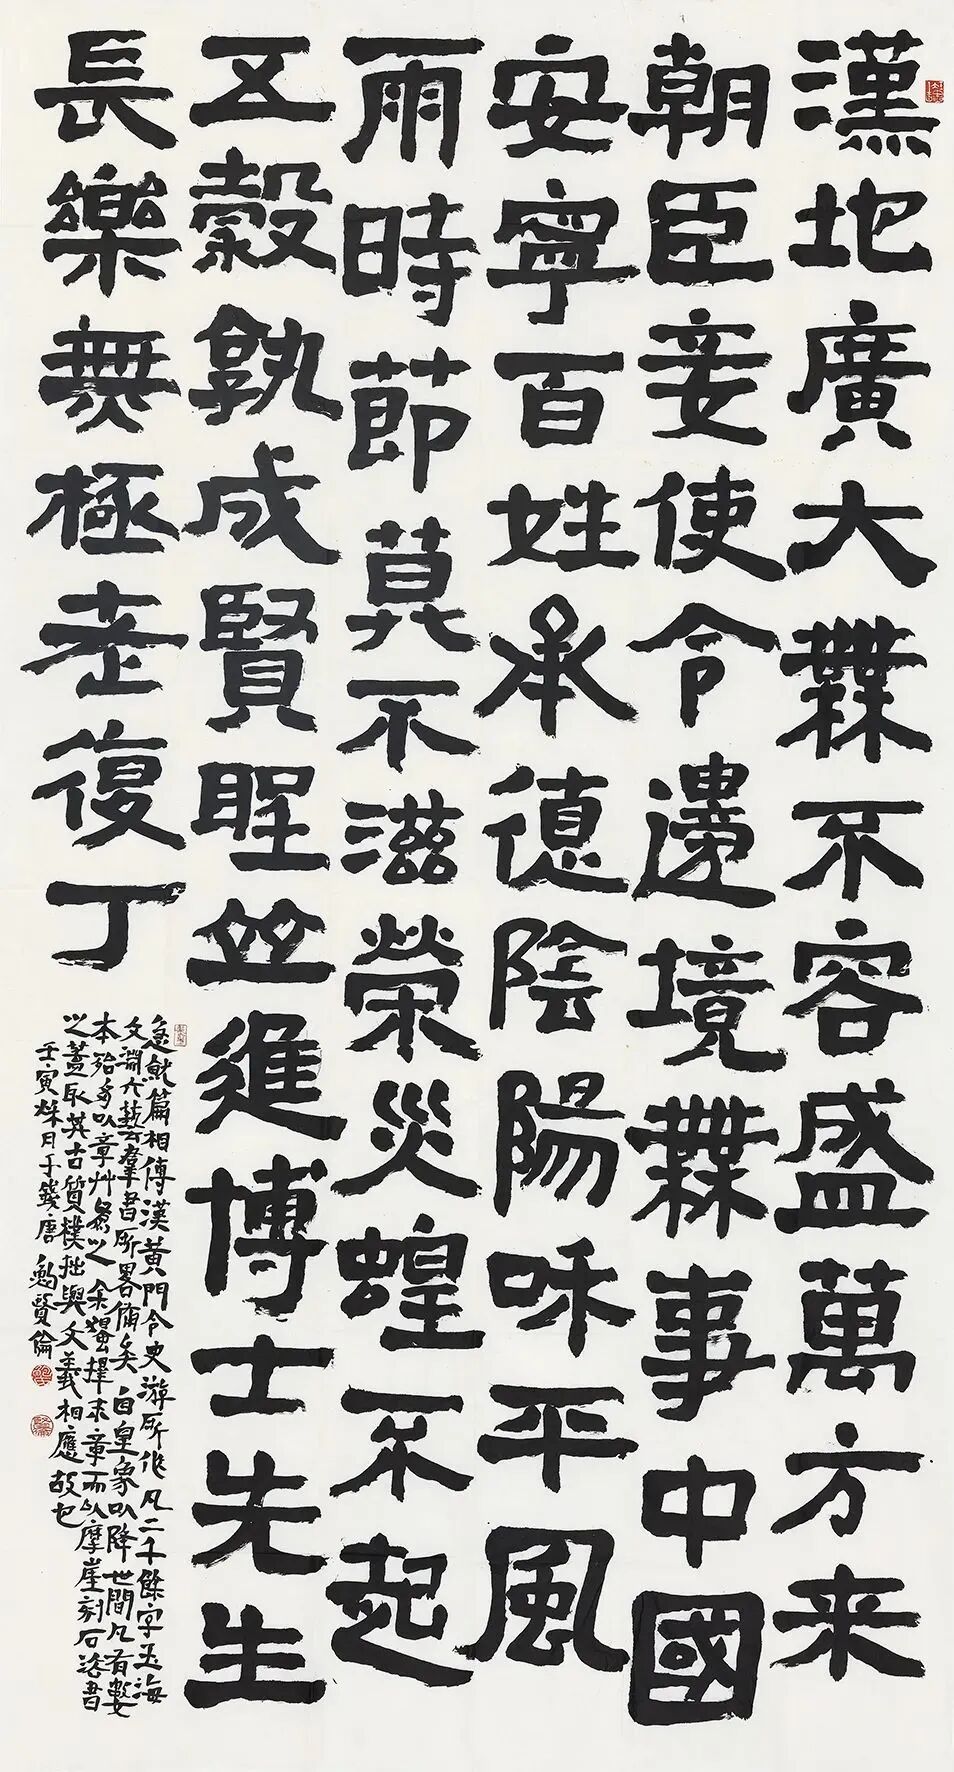 漢地廣大無不容盛萬方来
朝臣妾使令邊境無事中國
安寧百姓承德陰陽和平風
雨時節莫不滋榮災蝗不起
五穀孰成賢聖並進博士先生
長樂無極老復丁
急就篇相傳漢黄門令史游所作凡二千餘字玉海
文淵六藝羣書所畧備矣自皇象以降世間凡有數
本殆多以章艸為之余獨擇末章而以摩崖刻石法書
之蓋取其古質樸拙與文義相應故也
壬寅秋月于錢唐鮑賢倫